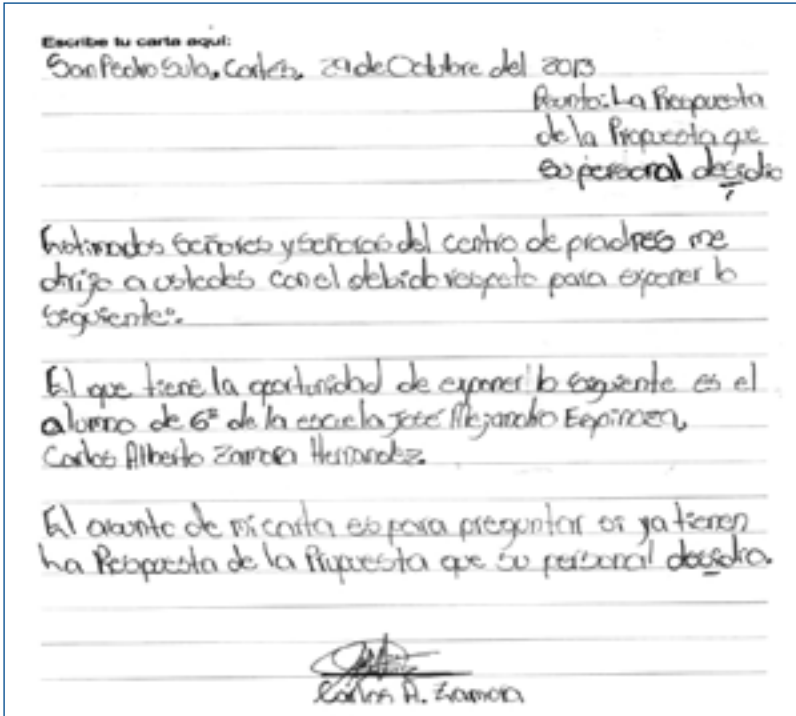 Escribe tu carta aquí:
San Pedro Sula, Cortés, 29 de Octubre del 2013
Asunto: La Respuesta
de la Propuesta que
su personal decidio
Estimados señores y señoras del centro de pradres me
dirijo a ustedes con el debido respeto para exponer lo
siguiente:
El que tiene la oportunidad de exponer lo siguiente es el
alumno de 6º de la escuela José Alejandro Espinoza,
Carlos Alberto Zamora Hernandez.
El asunto de mi carta es para preguntar si ya tienen
La Respuesta de la Propuesta que su personal decidio.
Carlos A. Zamora